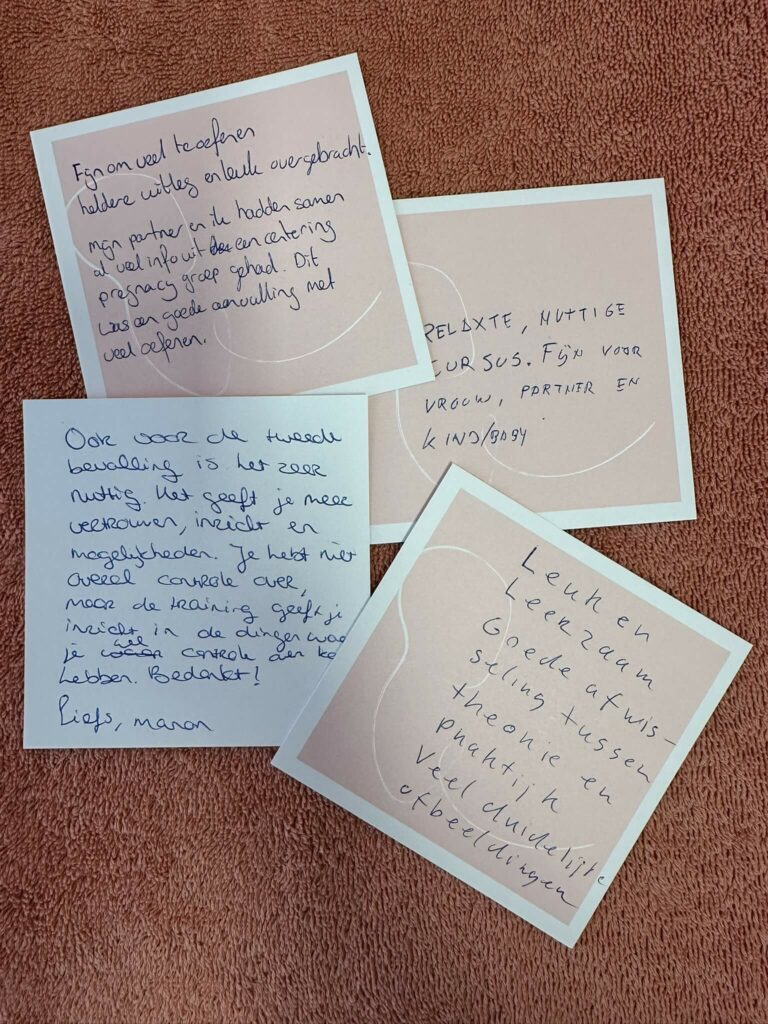 Fijn om veel te oefenen
heldere uitleg en leuk overgebracht.
mijn partner en ik hadden samen
al veel info uit een centering
pregnacy groep gehad. Dit
was een goede aanvulling met
veel oefenen.
RELAXTE, NUTTIGE
CURSUS. FIJN VOOR
VROUW, PARTNER EN
KIND/BABY.
Ook voor de tweede
bevalling is het zeer
nuttig. Het geeft je meer
vertrouwen, inzicht en
mogelijkheden. Je hebt niet
overal controle over,
maar de training geeft je
inzicht in de dingen waar
je wel controle over
hebben. Bedankt!
Liefs, manon
Leuk en
Leerzaam
Goede afwis-
seling tussen
theorie en
praktijk
Veel duidelijke
afbeeldingen